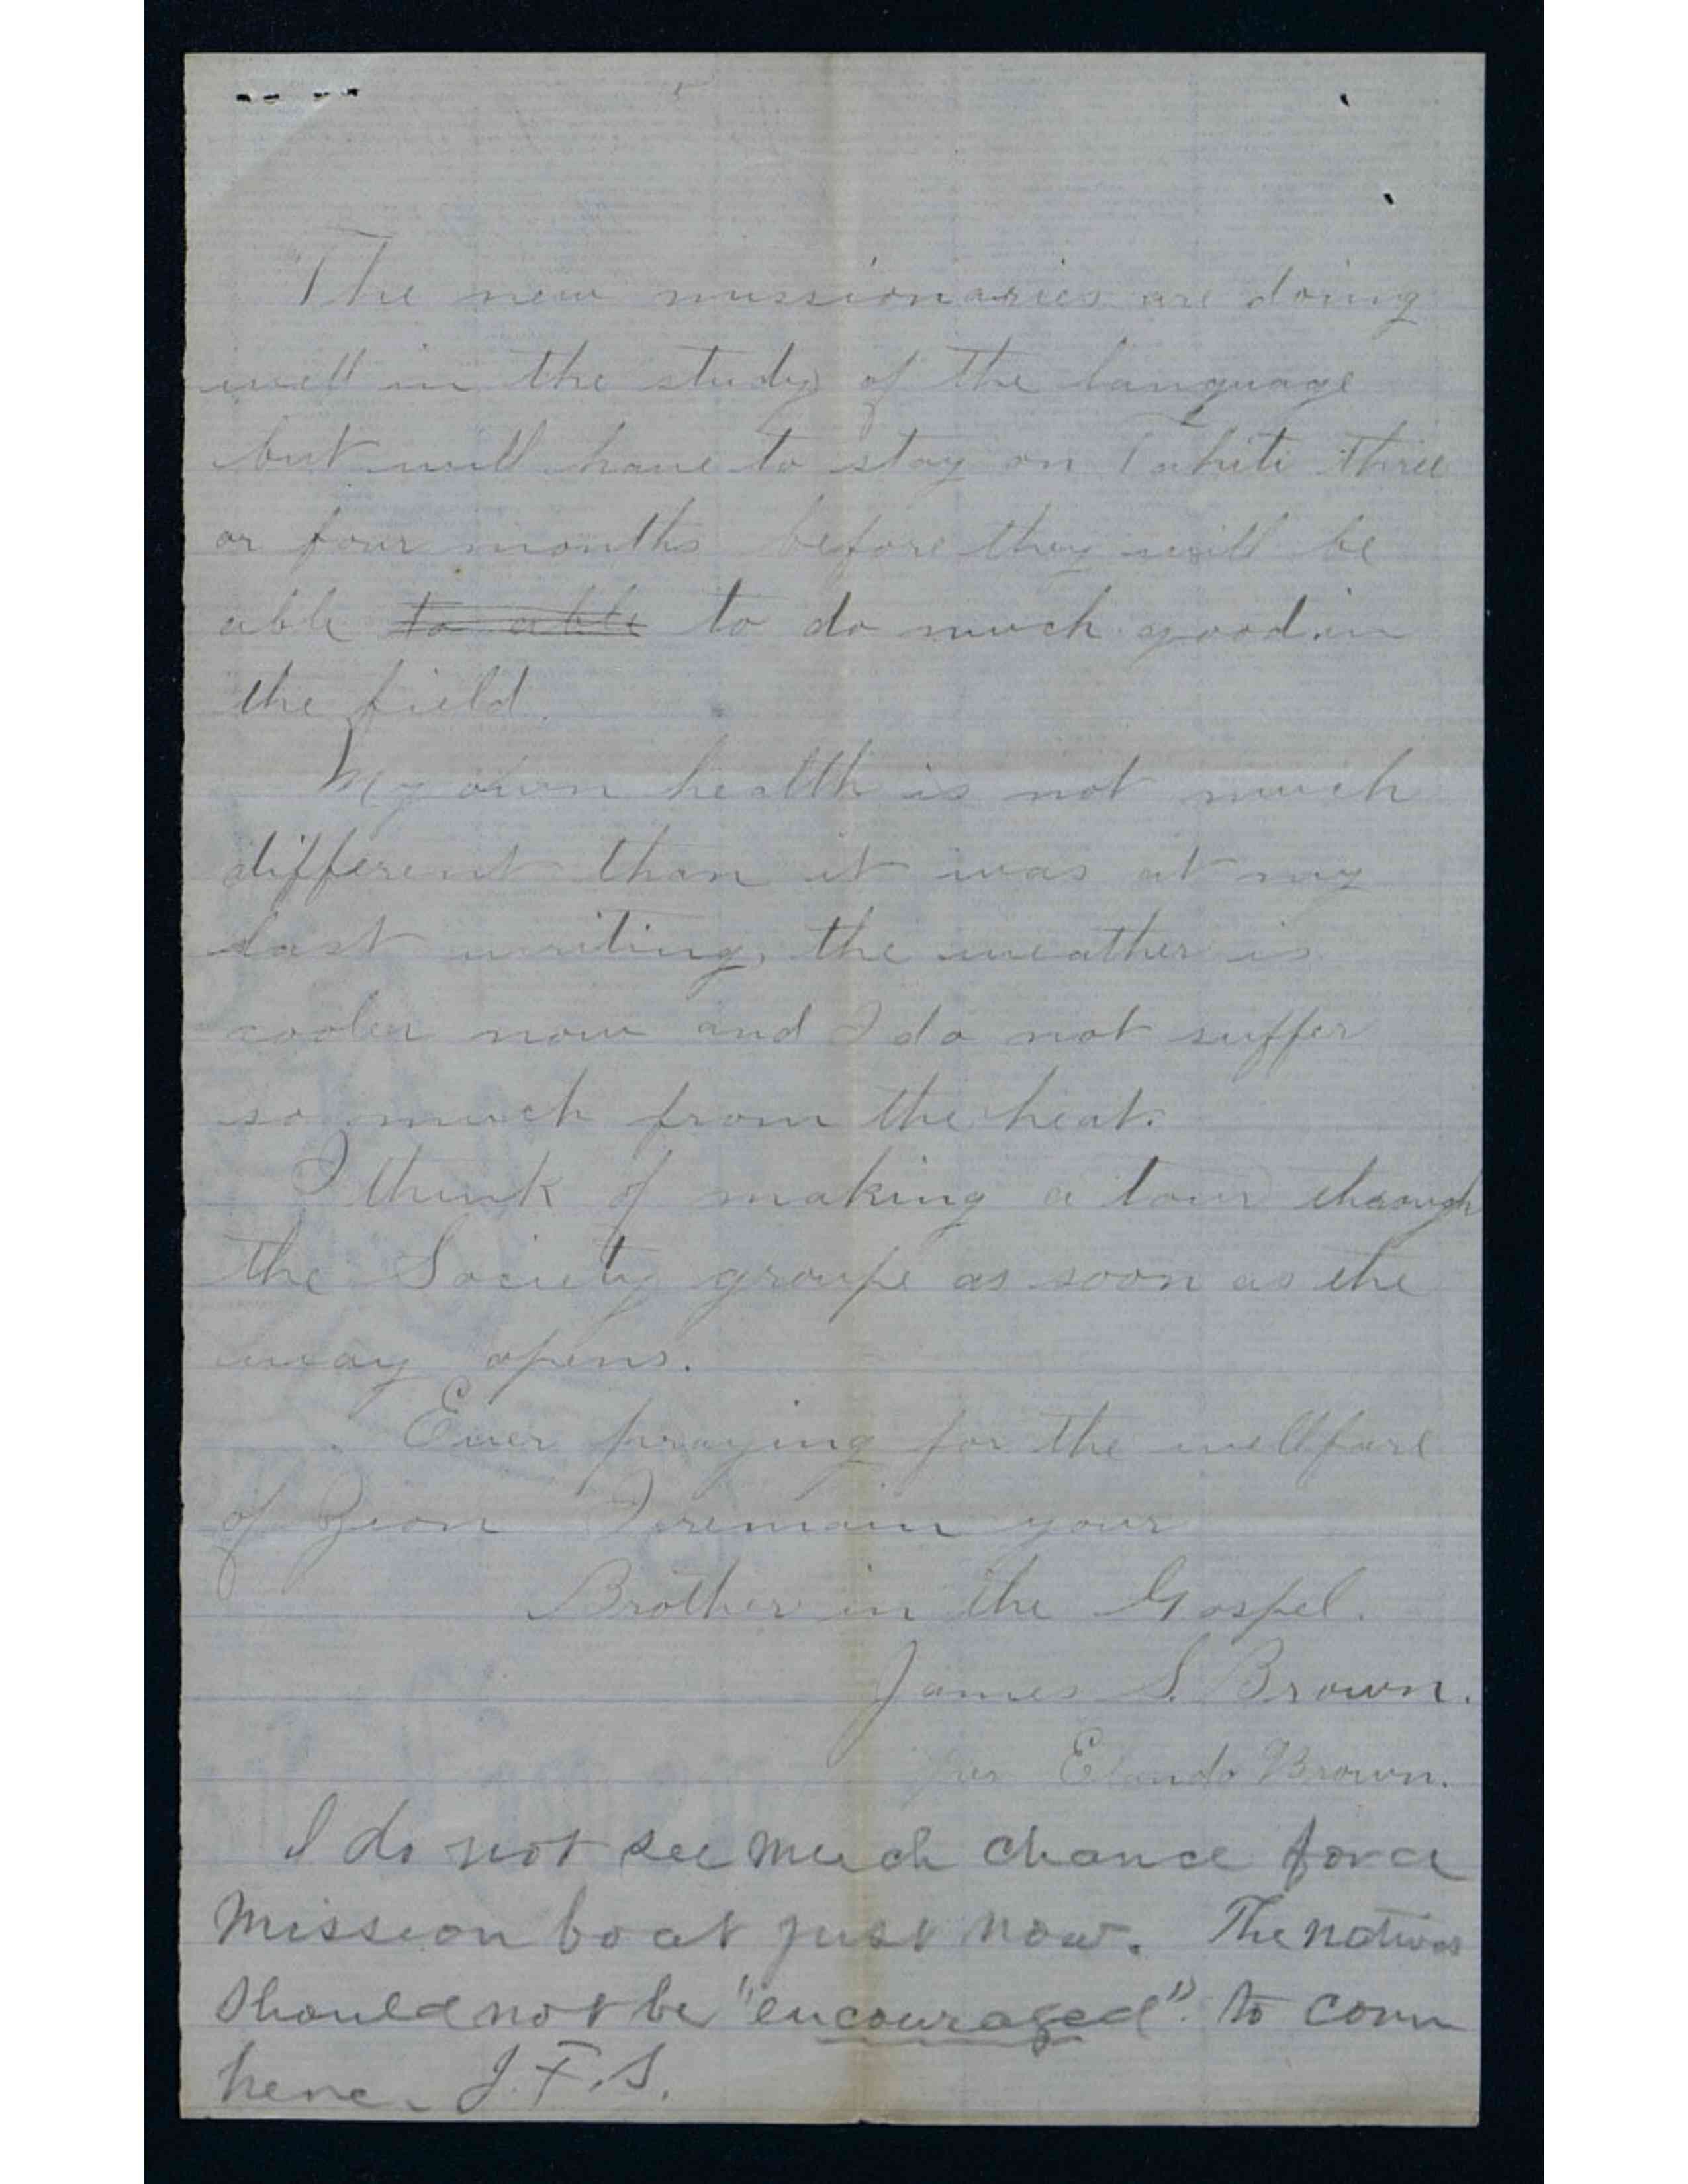 The new missionaries are doing
well in the study of the language
but will have to stay on Tahiti three
or four months before they will be
able to able to do much good in
the field.
My own health is not much
different than it was at my
last writing, the weather is
cooler now and I do not suffer
so much from the heat.
I think of making a tour through
the Society groupe as soon as the
way opens.
Ever praying for the wellfare
of Zion I remain your
Brother in the Gospel.
James S. Brown.
per Elando Brown.
I do not see much chance for a
mission boat just now. The natives
should not be "encouraged" to come
here. J.F.S.